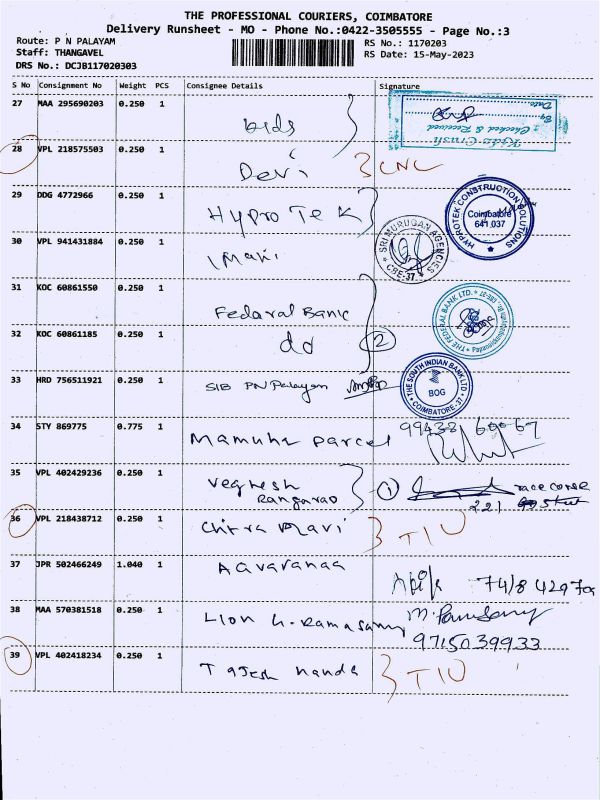 THE PROFESSIONAL COURIERS, COIMBATORE
Delivery Runsheet - MO - Phone No.:0422-3505555 - Page No.:3
Route: P N PALAYAM
Staff: THANGAVEL
DRS No.: DCJB117020303
RS No.: 1170203
RS Date: 15-May-2023
S No Consignment No Weight PCS Consignee Details Signature
27 MAA 295690203 0.250 1 kids
Kids Crush
Checked & Received
By
Date
28 VPL 218575503 0.250 1 Devi CNL
29 DDG 4772966 0.250 1 Hypro Tek
HYPROTEK CONSTRUCTION SOLUTIONS
Coimbatore
641 037
30 VPL 941431884 0.250 1 Mani
SRI MURUGAN AGENCIES
CBE-37
31 KOC 60861550 0.250 1 Fedaral Bank
THE FEDERAL BANK LTD.
32 KOC 60861185 0.250 1 do 2
33 HRD 756511921 0.250 1 SIB PN Palayam
THE SOUTH INDIAN BANK LTD
BOG
COIMBATORE-37
34 STY 869775 0.775 1 Mamuha parcel 99438 60067
35 VPL 402429236 0.250 1 Veghesh
Rangarao 1 race corse
221
36 VPL 218438712 0.250 1 Chitra Ravi TIU
37 JPR 502466249 1.040 1 Aavaranaa
38 MAA 570381518 0.250 1 Lion G. Ramasamy
9715039933
39 VPL 402418234 0.250 1 Tajesh nanda TIU